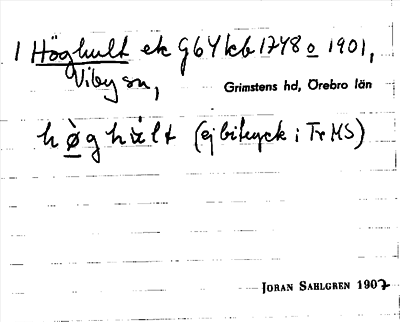 1 Höghult ek G64 kb 1748 o 1901,
Viby sn,
Grimstens hd, Örebro län
hø̀ghùlt (ej bitryck i Tr MS)
JORAN SAHLGREN 1907